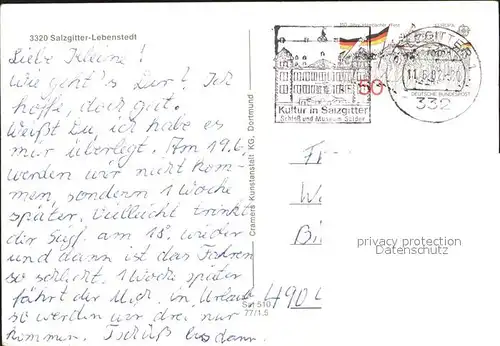 3320 Salzgitter-Lebenstedt
Liebe Kleine!
Wie geht's Dir! Ich
hoffe, doch gut.
Weißt Du, ich habe es
mir überlegt. Am 19.6.
werden wir nicht kom-
men, sondern 1 Woche
später. Vielleicht trinkt
der am 18. wieder
und dann ist das Fahren
so schlecht. 1 Woche später
fährt der in Urlaub
so werden wir drei nur
kommen. Tschüß bis dann.
Cramers Kunstanstalt KG, Dortmund
SALZGITTER
332
DEUTSCHE BUNDESPOST
EUROPA
60
Kultur in Salzgitter
Schloß und Museum Salder
Fr
W
Bi
490
77/1.5
privacy protection
Datenschutz